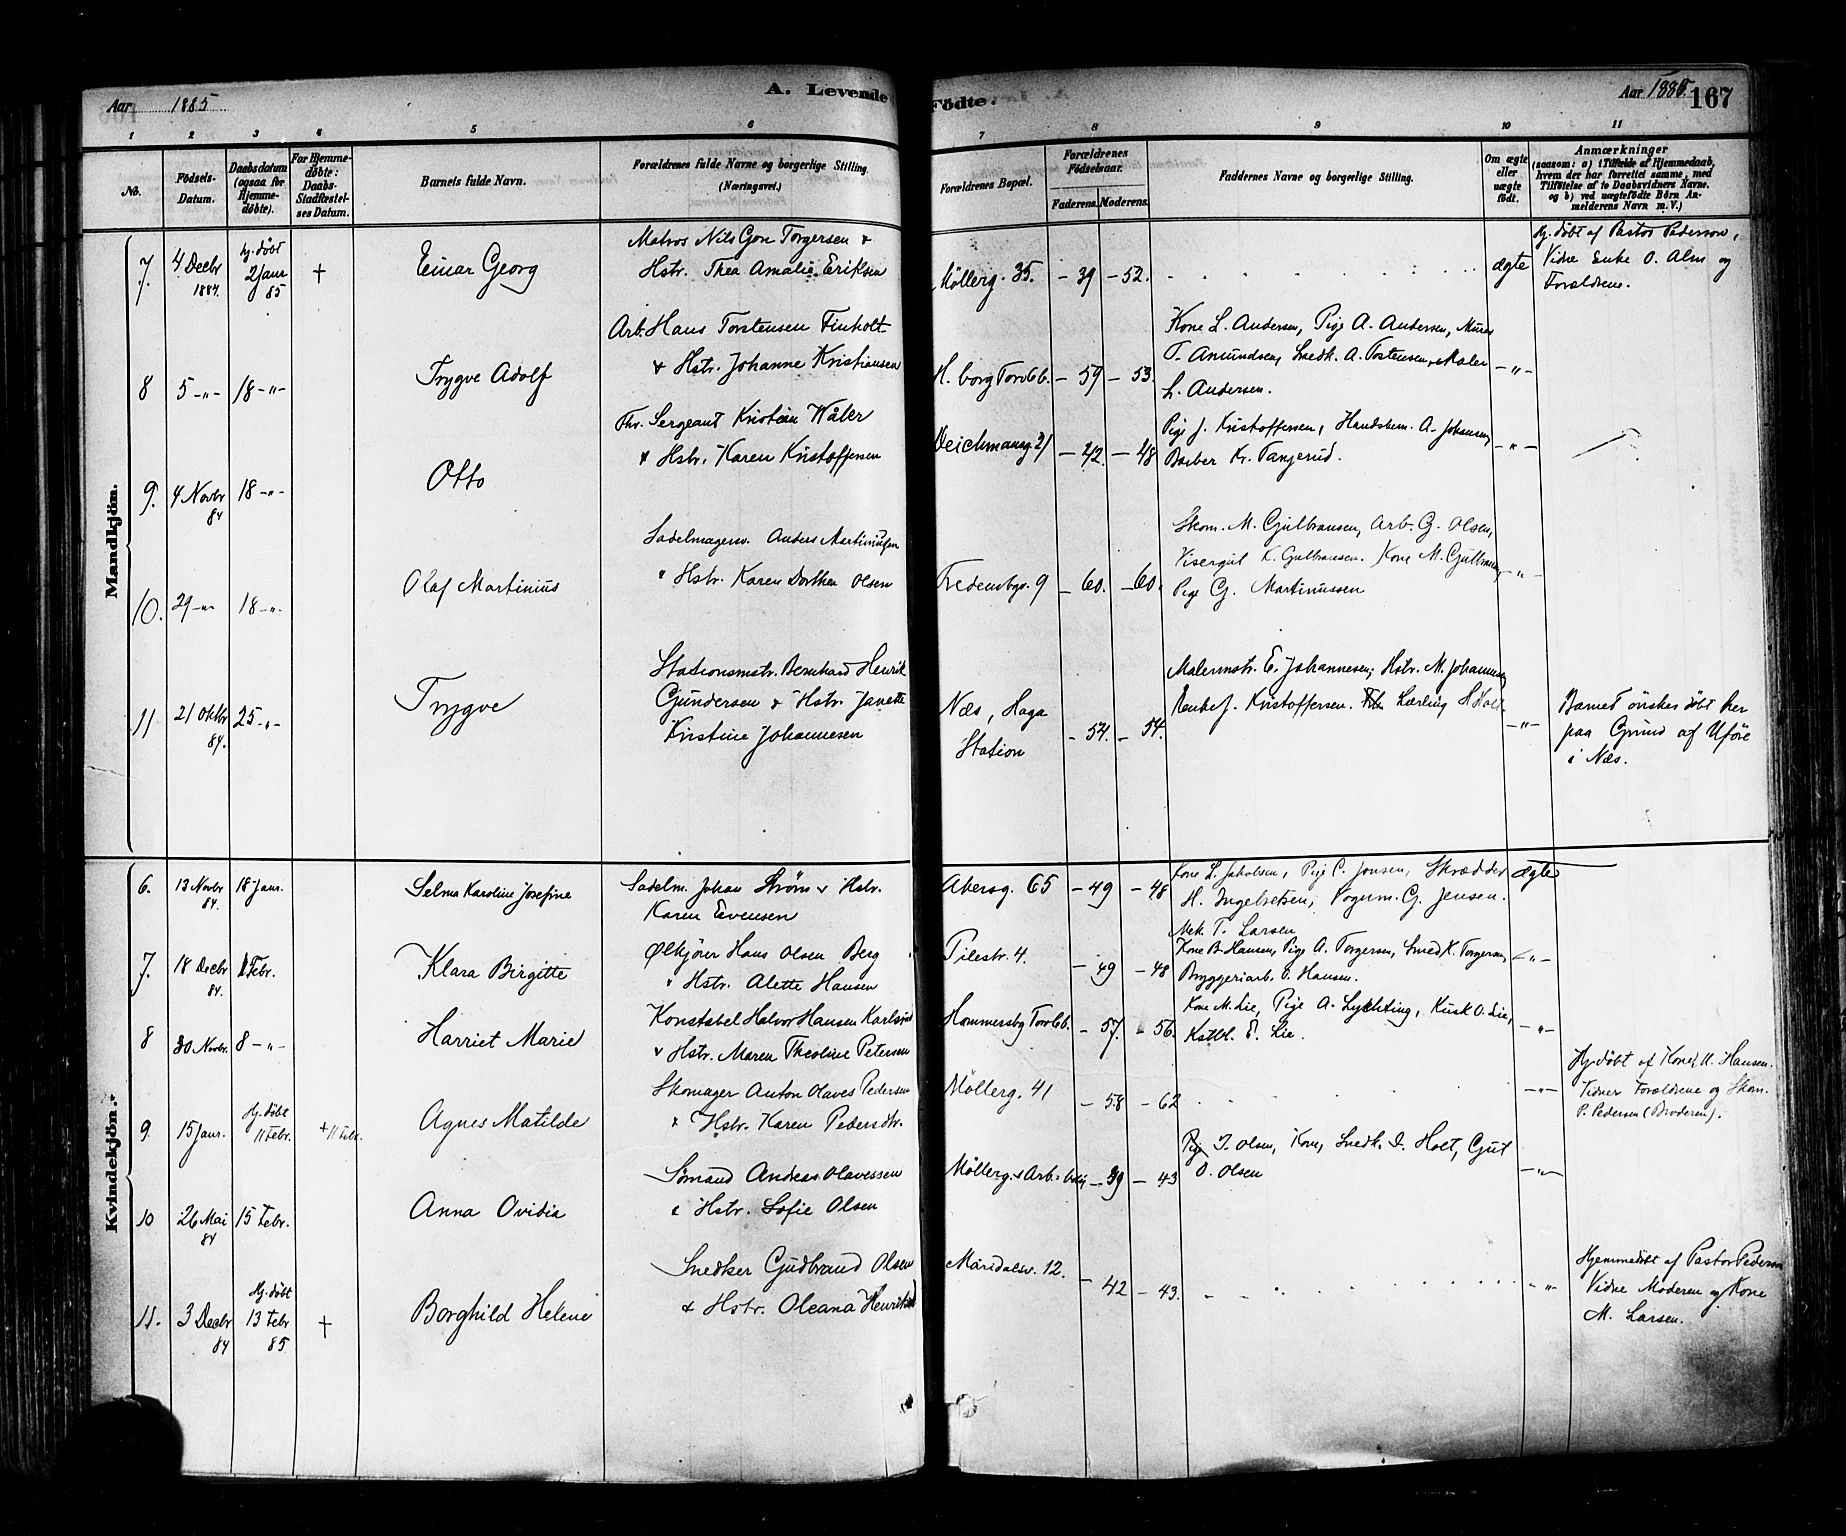 Aar 1885
A. Levende Födte.
Aar 1885.
167
1 2 3 4 5 6 7 8 9 10 11
No.
Födsels-
Datum.
Daabsdatum
(ogsaa for
Hjemme-
döbte).
For Hjemme-
döbte:
Daabs-
Stadfæstel-
ses Datum.
Barnets fulde Navn.
Forældrenes fulde Navne og borgerlige Stilling.
(Næringsvei.)
Forældrenes Bopæl.
Forældrenes
Födselsaar.
Faderens. Moderens.
Faddernes Navne og borgerlige Stilling.
Om ægte
eller
uægte
födt.
Anmærkninger
(saasom: a) i Tilfælde af Hjemmedaab,
hvem der har forrettet samme, med
Tilföielse af to Daabsvidners Navne.
og b) ved uægtefödte Börn An-
melderens Navn m. V.)
Mandkjön.
7. 4 Decbr 1884. hj. döbt 2 Janr 85 † Einar Georg
Matros Nils Gon Torgersen &
Hstr. Thea Amalie Eriksen
Möllerg. 35. – 39 – 52. ægte
Hj. döbt af Pastor Pederson,
Vidne Enke O. Alm og
Forældrene.
8 5 –"– 18 –"– Trygve Adolf
Arb. Hans Torstensen Finholt
& Hstr. Johanne Kristiansen
H. borg Torv 6 b. – 59 – 53.
Kone L. Andersen, Pige A. Andersen, Murer
T. Amundsen, Snedk. A. Tostensen, Maler
L. Andersen. –"–
9. 4 Novbr 84 18 –"– Otto
Fhv. Sergeant Kristian Wåler
& Hstr. Karen Kristoffersen
Deichmansg. 21 – 42. – 48
Pige J. Kristoffersen, Handsbem. A. Johansen,
Barber Kr. Tangerud. –"–
10. 29 –"– 18 –"– Olaf Martinius
Sadelmagersv. Anders Martinusen
& Hstr. Karen Dorthea Olsen
Fredensbgv. 9 – 60. – 60.
Skom. M. Gulbransen, Arb. G. Olsen,
Visergut K. Gulbransen. Kone M. Gulbransen
Pige G. Martinussen –"–
11 21 Oktbr 84. 25 –"– Trygve
Stationsmstr. Bernhard Henrik
Gundersen & Hstr. Janette
Kristine Johannesen
Næs, Haga
Station – 54. – 54.
Malermstr. E. Johannesen, Hstr. M. Johannesen
J. Kristoffersen. Lærling H. Holt –"–
Barnet önskes döbt her
paa Grund af Uföre
i Næs.
Kvindekjön.
6. 13 Novbr 84. 18 Janr. Selma Karoline Josefine
Sadelm. Johan Ström & Hstr.
Karen Evensen
Akersg. 65 – 49 – 48
Kone L. Jakobsen, Pige C. Jonsen, Skrædder
H. Ingebretsen, Vognm. G. Jensen.
Mek. T. Larsen ægte
7. 18 Decbr 84. 1 Febr. Klara Birgitte
Ölkjörer Hans Olsen Berg
& Hstr. Alette Hansen
Pilestr. 4. – 49 – 48
Kone B. Hansen, Pige A. Torgersen, Smed K. Torgersen,
Bryggeriarb. O. Hansen. –"–
8 30 Novbr. 8 –"– Harriet Marie
Konstabel Halvor Hansen Karlsrud
& Hstr. Maren Theoline Petersen
Hammersbg Torv 6 b. – 57. – 56.
Kone M. Lie, Pige A. Lykkting, Kusk O. Lie,
Kstbl. E. Lie. –"–
9. 15 Janr. Hj. döbt 11 Febr. + 11 Febr. Agnes Matilde
Skomager Anton Olaves Pedersen
& Hstr. Karen Pedersdtr.
Möllerg. 41 – 58 – 62 –"–
Hj. döbt af Kone M. Hansen.
Vidner Forældrene og Skom.
P. Pedersen (Broderen).
10 26 Mai 84 15 Febr. Anna Ovidia
Sömand Andreas Olavessen
& Hstr. Sofie Olsen
Möllerg. Arb. – 39 – 43
Pige I. Olsen, Kone, Snedk. I. Holt, Gut
O. Olsen –"–
11. 3 Decbr 84 Hj. döbt 13 Febr 85 † Borghild Helene
Snedker Gudbrand Olsen
& Hstr. Oleana Henriksd
Maridalsv. 12. – 42 – 43. –"–
Hjemmedöbt af Pastor Pederson
Vidne Moderen og Kone
M. Larsen.